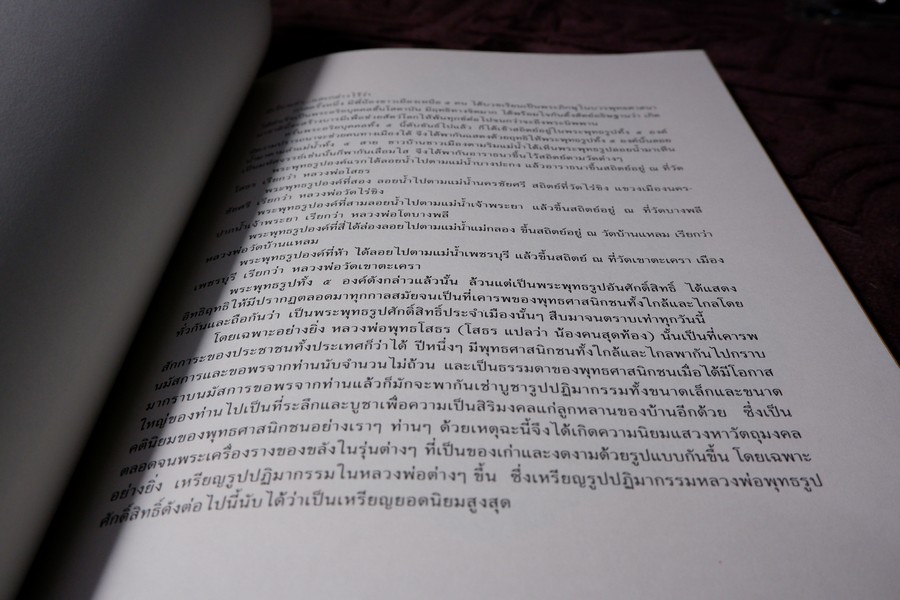 ครั้งหนึ่ง มีพี่น้องชาวเมืองเหนือ ๕ คน ได้บวชเรียนเป็นพระภิกษุในบวรพุทธศาสนา
สำเร็จเป็นพระอริยบุคคลชั้นโสดาบัน มีฤทธิ์ทางจิตมาก ได้พร้อมใจกันตั้งสัตย์อธิษฐานว่า เกิด
ครั้นพระอริยบุคคลทั้ง ๕ นี้ดับขันธ์ไปแล้ว ก็ได้เข้าสถิตย์อยู่ในพระพุทธรูปทั้ง ๕ องค์
พระพุทธรูปองค์แรกได้ลอยน้ำไปตามแม่น้ำบางปะกง แล้วอาราธนาขึ้นสถิตย์อยู่ ณ ที่วัด
โสธร เรียกว่า หลวงพ่อโสธร
พระพุทธรูปองค์ที่สอง ลอยน้ำไปตามแม่น้ำนครชัยศรี สถิตย์ที่วัดไร่ขิง แขวงเมืองนคร-
ชัยศรี เรียกว่า หลวงพ่อวัดไร่ขิง
พระพุทธรูปองค์ที่สามลอยน้ำไปตามแม่น้ำเจ้าพระยา แล้วขึ้นสถิตย์อยู่ ณ ที่วัดบางพลี
ปากน้ำเจ้าพระยา เรียกว่า หลวงพ่อโตบางพลี
พระพุทธรูปองค์ที่สี่ได้ล่องลอยไปตามแม่น้ำแม่กลอง ขึ้นสถิตย์อยู่ ณ วัดบ้านแหลม เรียกว่า
หลวงพ่อวัดบ้านแหลม
พระพุทธรูปองค์ที่ห้า ได้ลอยไปตามแม่น้ำเพชรบุรี แล้วขึ้นสถิตย์ ณ ที่วัดเขาตะเครา เมือง
เพชรบุรี เรียกว่า หลวงพ่อวัดเขาตะเครา
พระพุทธรูปทั้ง ๕ องค์ดังกล่าวแล้วนั้น ล้วนแต่เป็นพระพุทธรูปอันศักดิ์สิทธิ์ ได้แสดง
อิทธิฤทธิ์ให้มีปรากฏตลอดมาทุกกาลสมัยจนเป็นที่เคารพของพุทธศาสนิกชนทั้งใกล้และไกลโดย
ทั่วกันและถือกันว่า เป็นพระพุทธรูปศักดิ์สิทธิ์ประจำเมืองนั้นๆ สืบมาจนตราบเท่าทุกวันนี้
โดยเฉพาะอย่างยิ่ง หลวงพ่อพุทธโสธร (โสธร แปลว่า น้องคนสุดท้อง) นั้นเป็นที่เคารพ
สักการะของประชาชนทั้งประเทศก็ว่าได้ ปีหนึ่งๆ มีพุทธศาสนิกชนทั้งใกล้และไกลพากันไปกราบ
นมัสการและขอพรจากท่านนับจำนวนไม่ถ้วน และเป็นธรรมดาของพุทธศาสนิกชนเมื่อได้มีโอกาส
มากราบนมัสการขอพรจากท่านแล้วก็มักจะพากันเช่าบูชารูปปฏิมากรรมทั้งขนาดเล็กและขนาด
ใหญ่ของท่านไปเป็นที่ระลึกและบูชาเพื่อความเป็นสิริมงคลแก่ลูกหลานของบ้านอีกด้วย ซึ่งเป็น
คตินิยมของพุทธศาสนิกชนอย่างเราๆ ท่านๆ ด้วยเหตุฉะนี้จึงได้เกิดความนิยมแสวงหาวัตถุมงคล
ตลอดจนพระเครื่องรางของขลังในรุ่นต่างๆ ที่เป็นของเก่าและงดงามด้วยรูปแบบกันขึ้น โดยเฉพาะ
อย่างยิ่ง เหรียญรูปปฏิมากรรมในหลวงพ่อต่างๆ ขึ้น ซึ่งเหรียญรูปปฏิมากรรมหลวงพ่อพุทธรูป
ศักดิ์สิทธิ์ดังต่อไปนี้นับได้ว่าเป็นเหรียญยอดนิยมสูงสุด